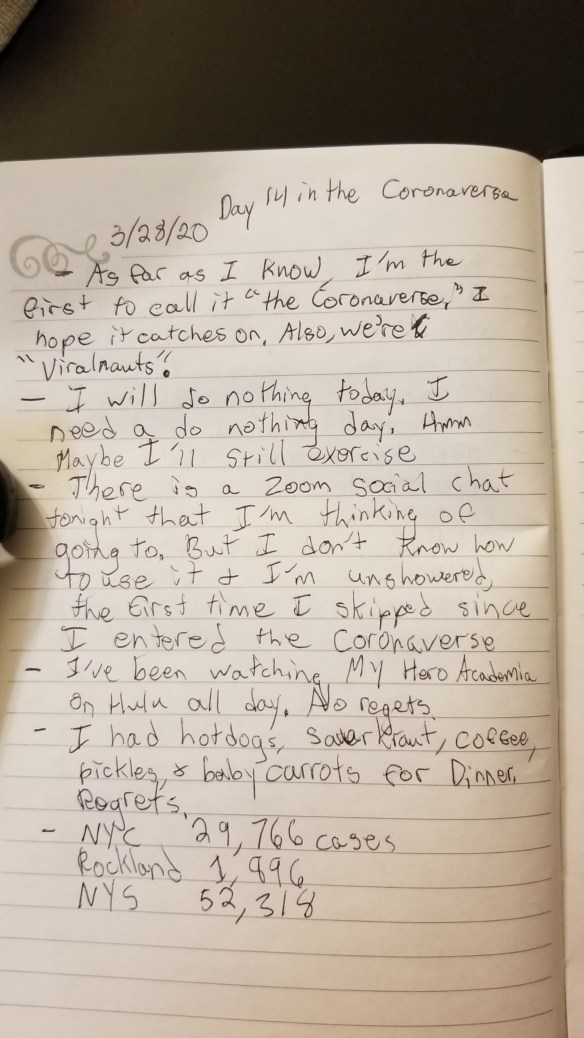 Day 14 in the Coronaverse
3/28/20
- As far as I know, I'm the
first to call it "the Coronaverse," I
hope it catches on. Also, we're
"Viralnauts".
- I will do nothing today. I
need a do nothing day. Hmm
Maybe I'll still exercise
- There is a Zoom social chat
tonight that I'm thinking of
going to. But I don't know how
to use it & I'm unshowered,
the first time I skipped since
I entered the Coronaverse
- I've been watching My Hero Academia
on Hulu all day. No regets.
- I had hotdogs, Sauerkraut, coffee,
pickles, & baby carrots for Dinner.
Regrets.
- NYC 29,766 cases
Rockland 1,896
NYS 52,318